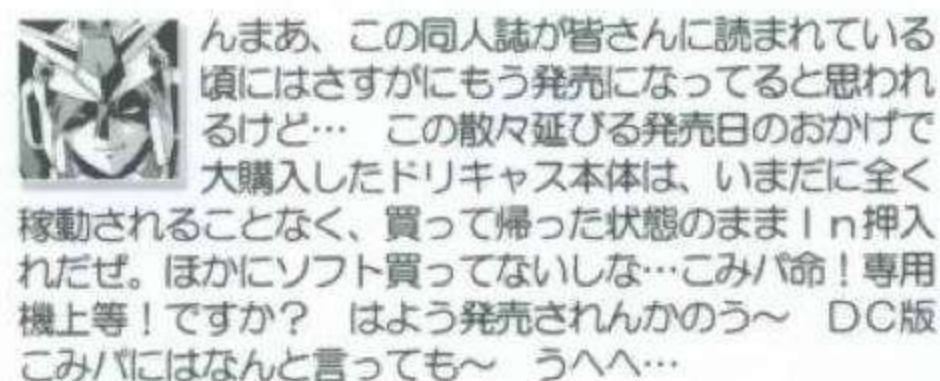 んまあ、この同人誌が皆さんに読まれている
頃にはさすがにもう発売になってると思われ
るけど… この散々延びる発売日のおかげで
大購入したドリキャス本体は、いまだに全く
稼動されることなく、買って帰った状態のままＩｎ押入
れだぜ。ほかにソフト買ってないしな…こみパ命！専用
機上等！ですか？ はよう発売されんかのう～ ＤＣ版
こみパにはなんと言っても～ うへへ…